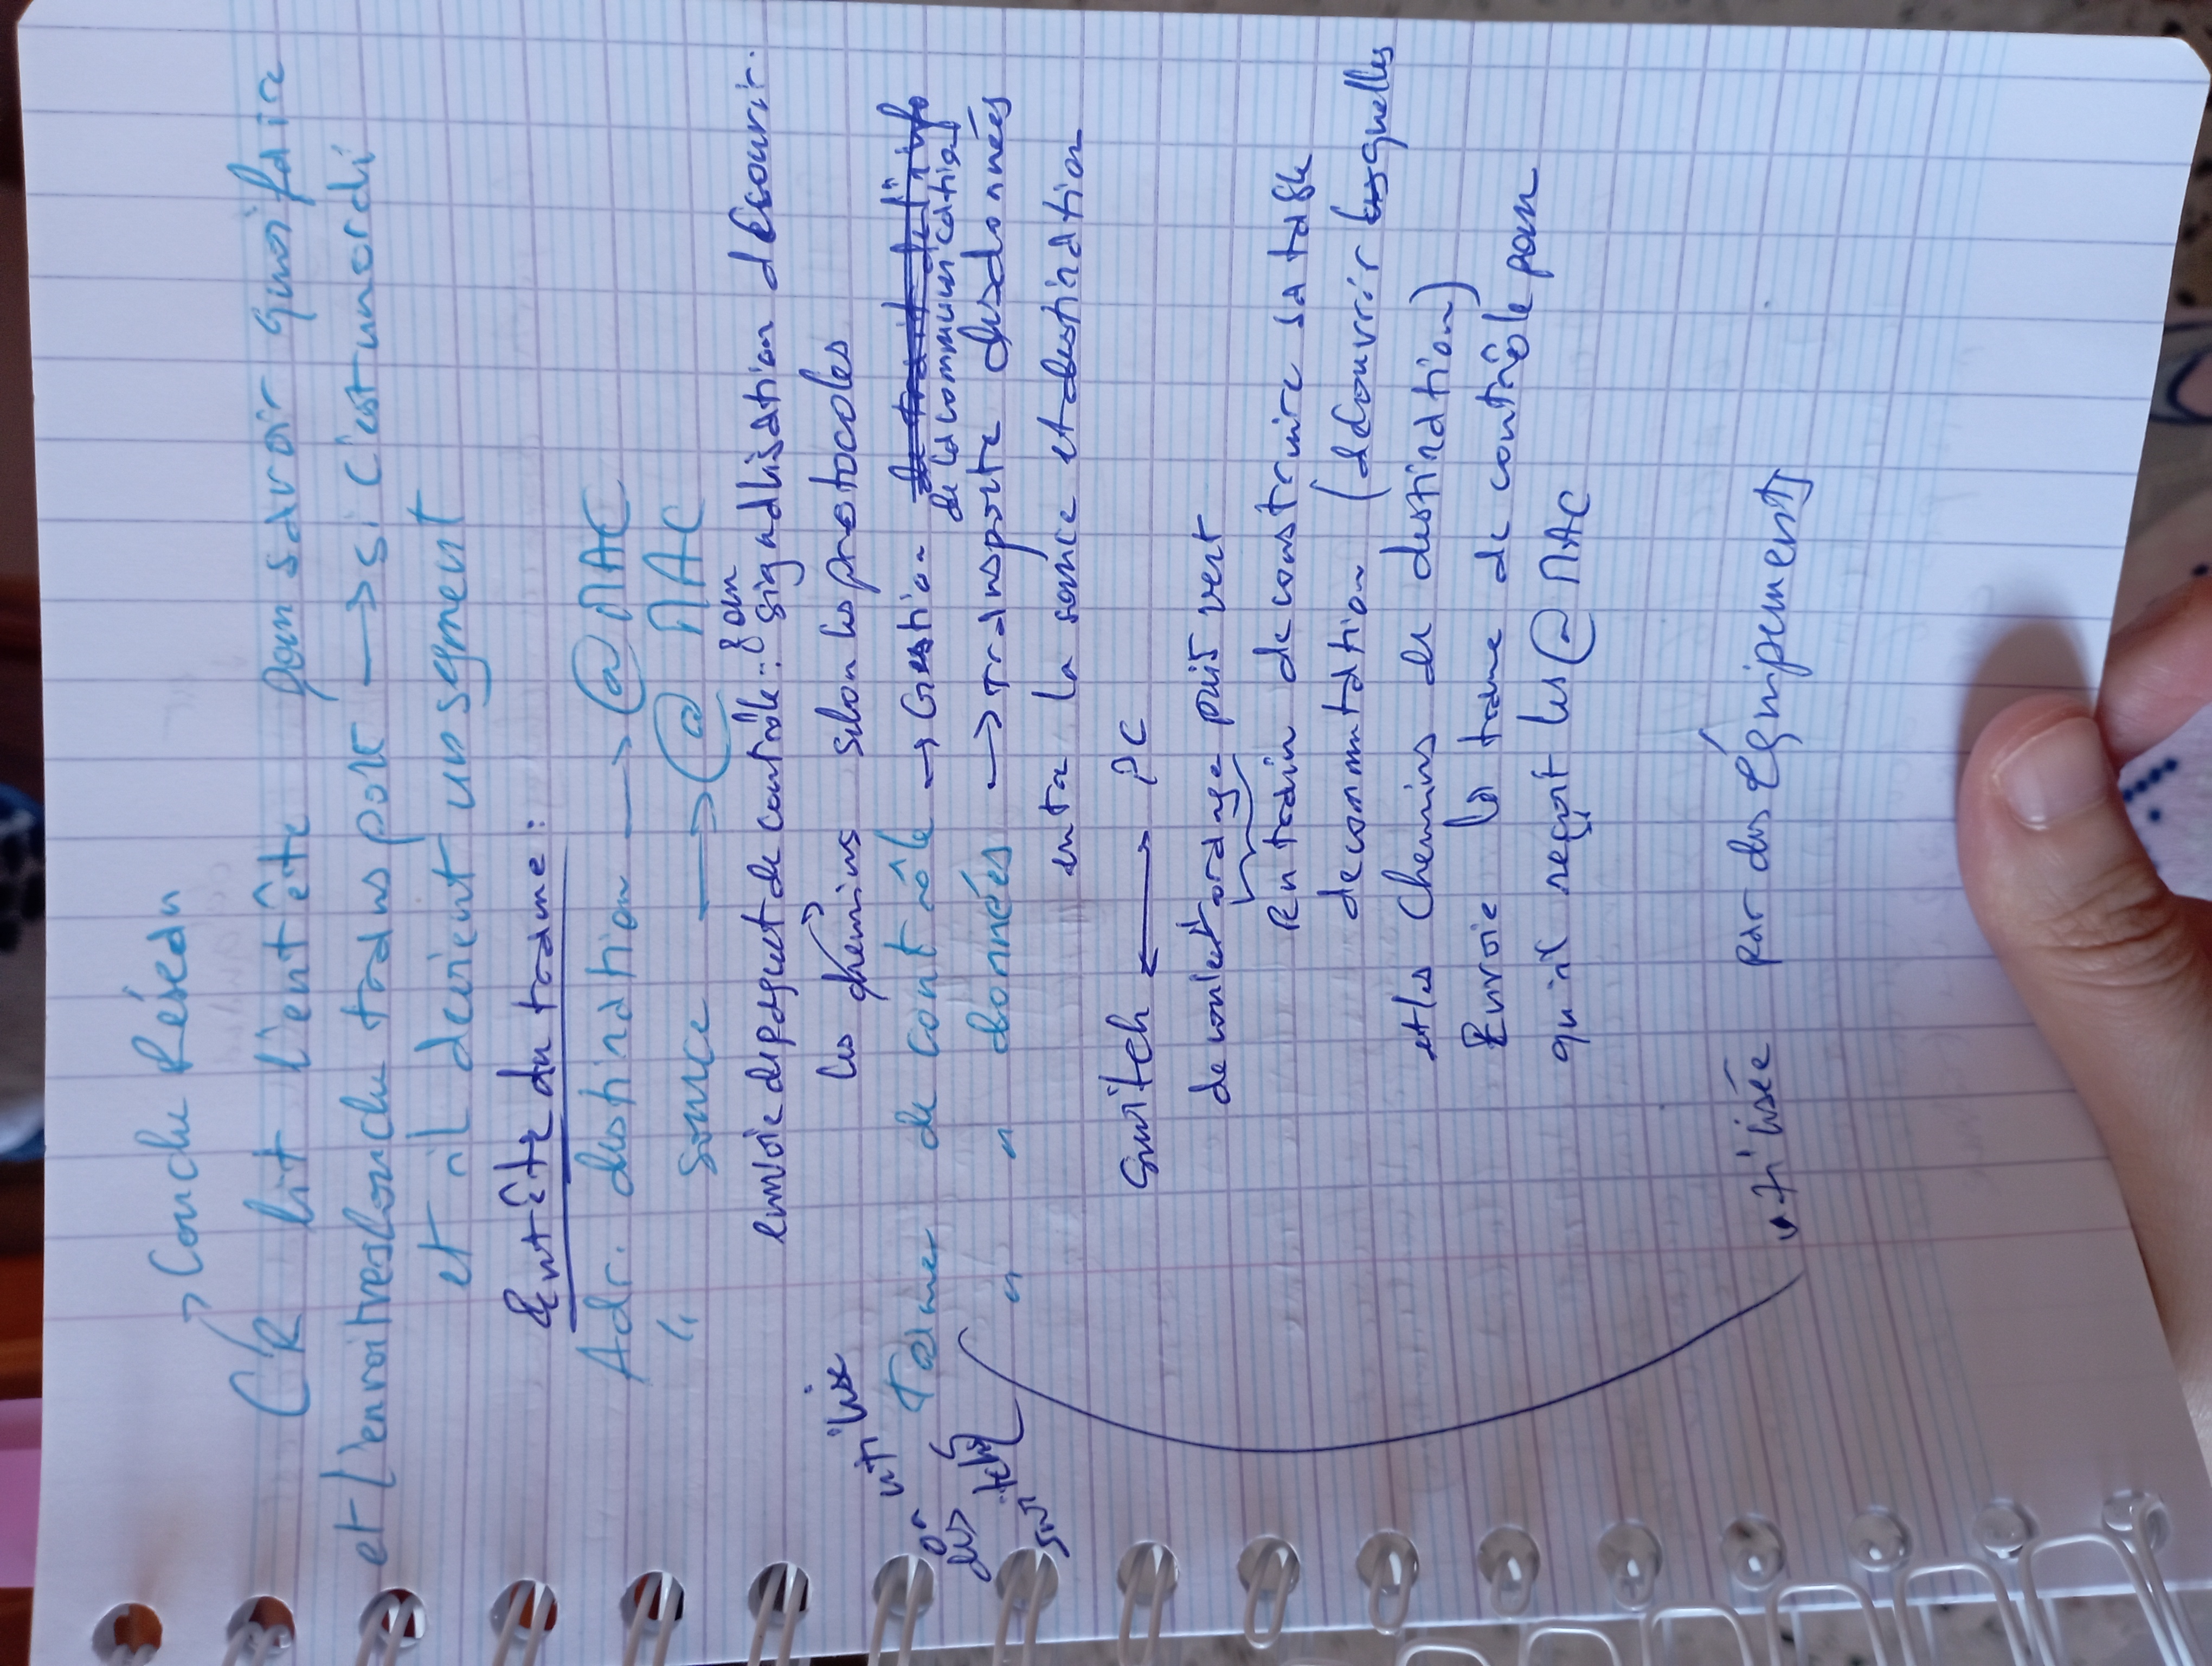 → Couche Réseau
CR lit l'entête pour savoir quoi faire
et l'envoit vers couche transport → si c'est un ordi
et il devient un segment
Entête du trame :
Adr. destination → @ MAC
" source → @ MAC
envoie de paquet de contrôle : signallisation découvrir
les chemins selon les protocoles
on utilise
des
switchs
Trames de contrôle → Gestion de la communication
" " données → transporte des données
entre la source et destination
switch ⟷ PC
de couleur orange puis vert
En train de construire sa table
de commutation (découvrir quelles
et les chemins de destination)
Envoie la trame de contrôle pour
qu'il reçoit les @ MAC
utilisée par des équipements